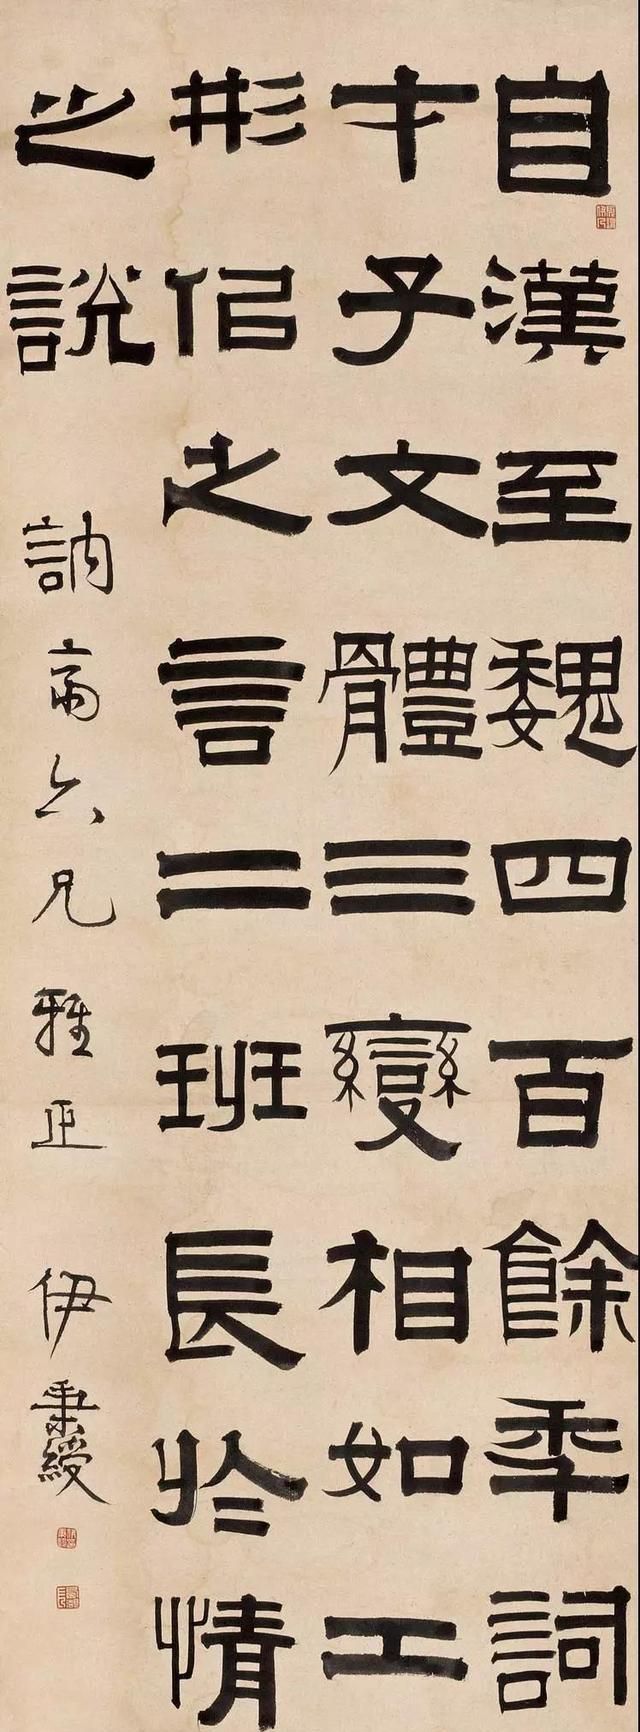 自漢至魏四百餘秊詞
才子文體三變相如工
形佀之言二班長於情
之說
訥齋六兄雅正 伊秉綬